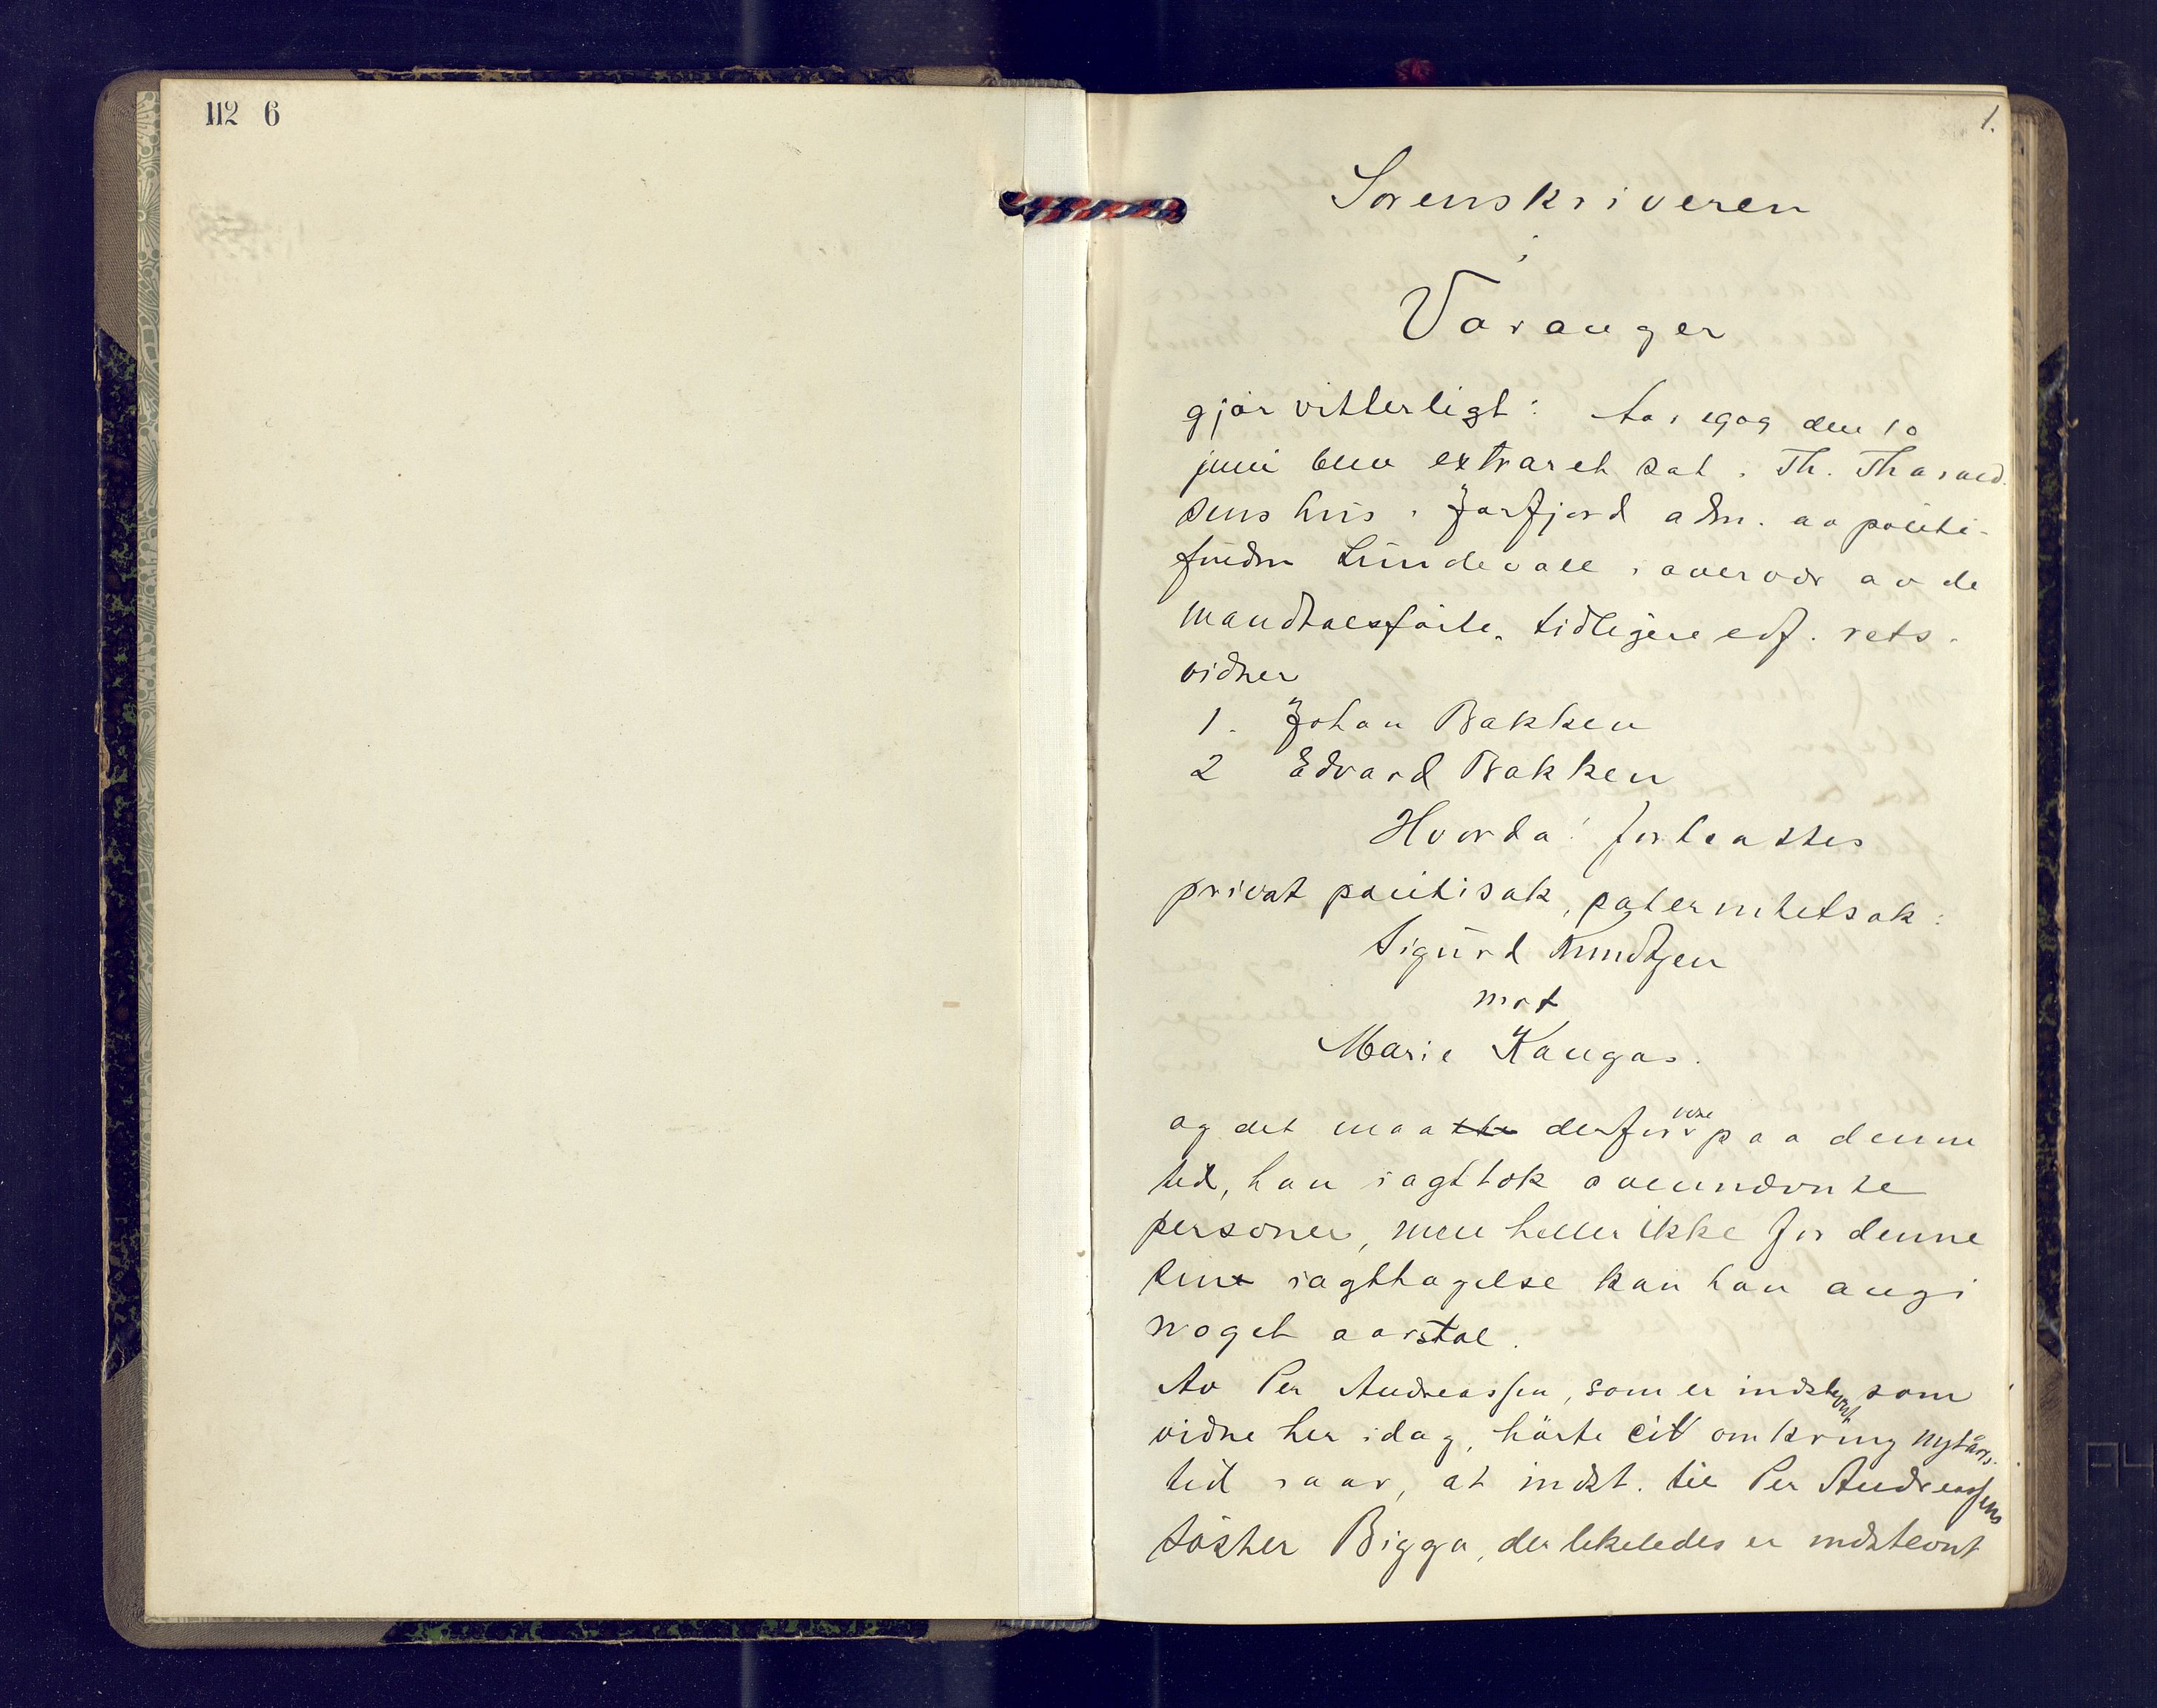 112 6
1.
Sorenskriveren
i
Varanger
gjör vitterligt: Aar 1909 den 10
juni blev extraret sat i Th. Tharald-
sens hus i Jarfjord adm. av politi-
fuldm Lundevall i overvær av de
mandtalsförte, tidligere edf. rets-
vidner
1. Johan Bakken
2 Edvard Bakken
Hvorda: forteattes
privat politisak, paternitetsak:
Sigurd Knudtzen
mot
Marie Kangas.
og det maatte derfor være paa denne
tid, han iagttok ovennævnte
personer, men heller ikke for denne
sin iagttagelse kan han angi
noget aarstal.
Av Per Andreassen, som er indstevnt som
vidne her idag, hörte cit omkring nytårs-
tid iaar, at indst. til Per Andreassens
söster Bigga, der likeledes er indstevnt